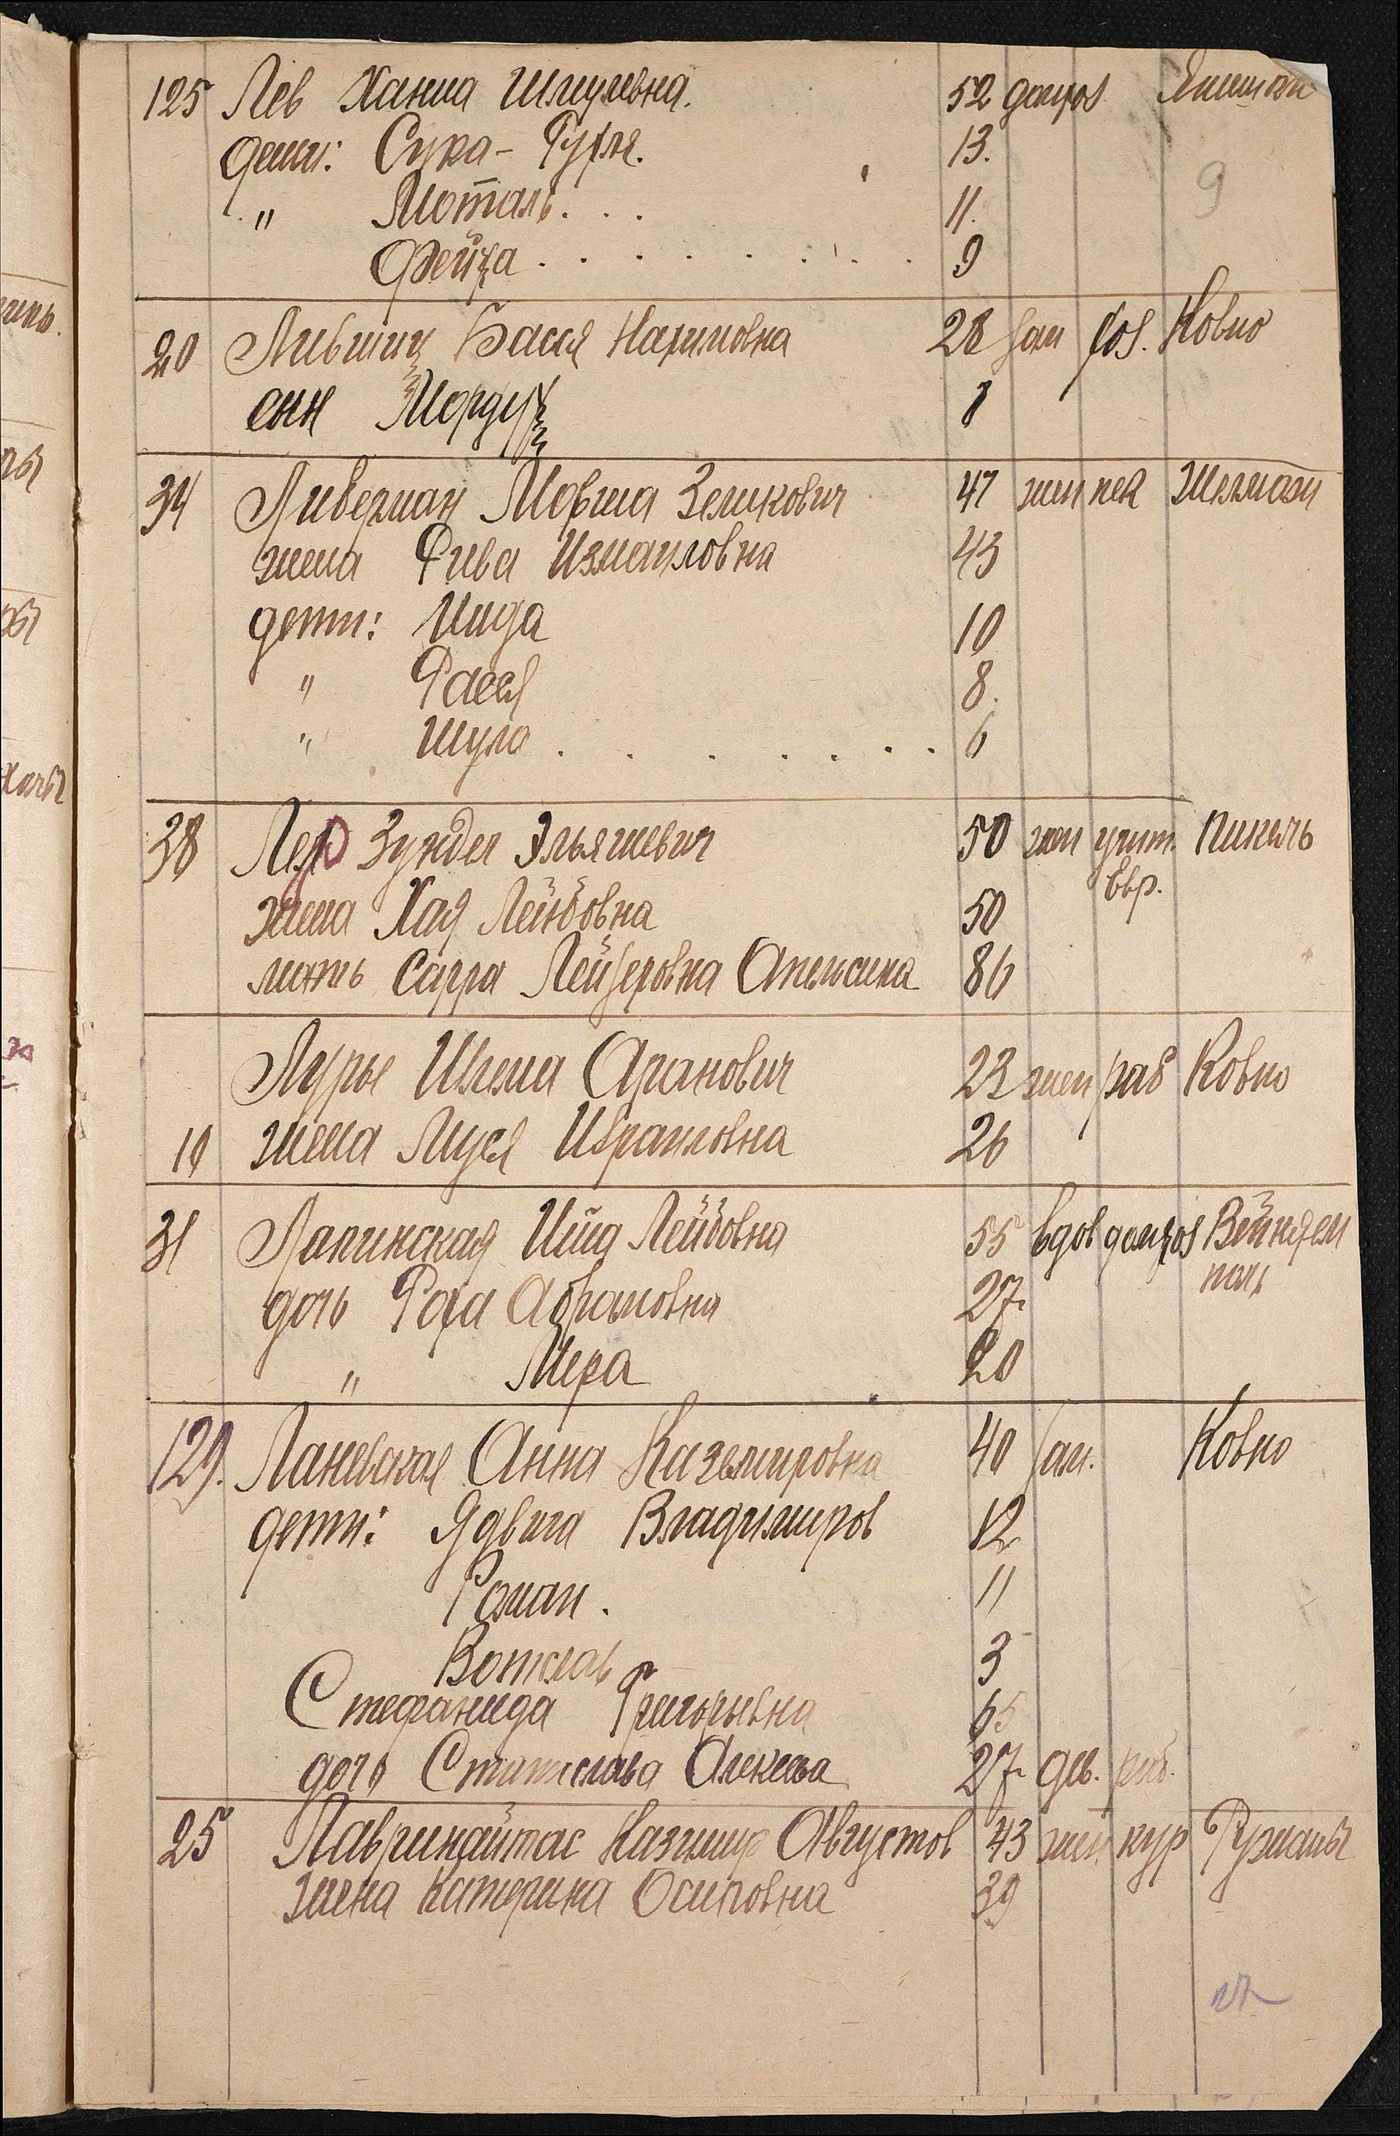 9
125 Лев Ханна Шмулевна. 52 домхоз
дети: Сука-Гутля. 13.
" Моталь. . . 11.
Фейга . . . . . . . . . 9
20 Лившиц Бася Нахимовна 28 зам хоз. Ковно
сын Мордух 8
34 Ливерман Мовша Зеликович 47 жен пек
жена Рива Измаиловна 43
дети: Ида 10
" Рася 8.
" Шула . . . . . . . 6
38 Лев Зундел Эльяшевич 50 жен учит.
Евр.
жена Хая Лейбовна 50
мать Сарра Лейзеровна 86
Лурье Шлема Аранович 23 жен раб Ковно
10 жена Муся Израиловна 26
31 Лапинская Ита Лейбовна 55 вдов домхоз
дочь Роза Абрамовна 27
" Мера 20
129. Ланевская Анна Каземировна 40 зам. Ковно
дети: Ядвига Владимиров 12
Роман. 11
3
Стефанида Григорьевна 65
дочь Станислава Алексеева 27 дев. раб.
25 Лавринайтас Казимир Августов 43 жен кур
жена Катерина Осиповна 39